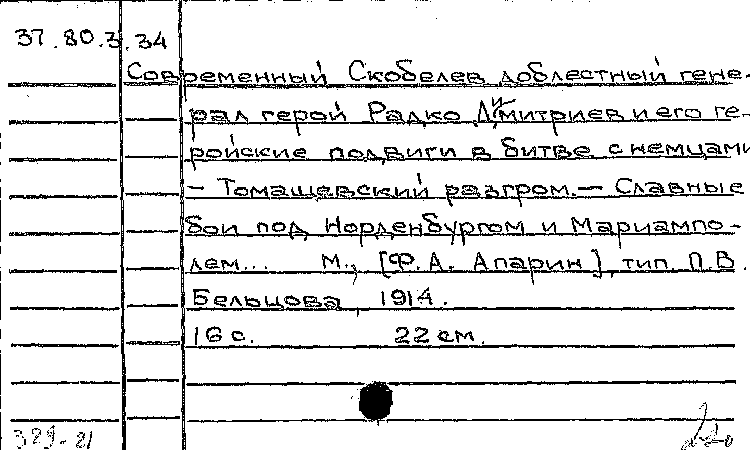 37.80.3.34
Современный Скобелев доблестный гене-
рал герой Радко Дмитриев и его ге-
ройские подвиги в битве с немцами
- Томашевский разгром. - Славные
бои под Норденбургом и Мариампо-
лем... М., [Ф.А. Апарин], тип. П.В.
Бельцова, 1914.
16 с. 22 см.
329-81